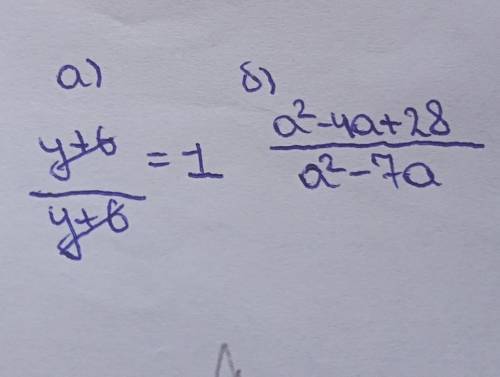 а) б)
y+6 / y+6 = 1
a²-4a+28 / a²-7a